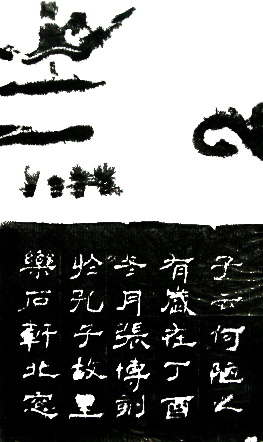 子云何陋之
有歲在丁酉
冬月張博刻
於孔子故里
樂石軒北窓